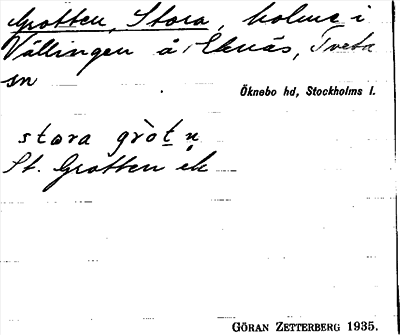 Grotten, Stora, holme i
Vällingen å Eknäs, Tveta
sn
Öknebo hd, Stockholms l.
stora gròt n̥
St. Grotten ek
GÖRAN ZETTERBERG 1935.